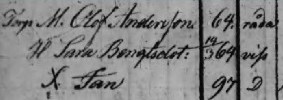 Torp. M. Olof Andersson 64. råda
H Sara Bengtsdot: 14/3 64 viss
X Jan 97 D